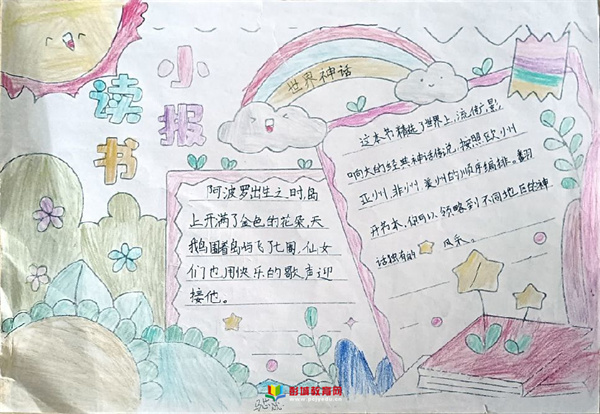 读书
小报
世界神话
阿波罗出生之时,岛
上开满了金色的花朵,天
鹅围着岛屿飞了七圈,仙女
们也用快乐的歌声迎
接他。
这本书精选了世界上,流传、影
响大的经典神话传说,按照欧州
亚州、非州、美州的顺序编排。翻
开书本,你可以领略到不同地区的神
话独有的 风采。
彭城教育网